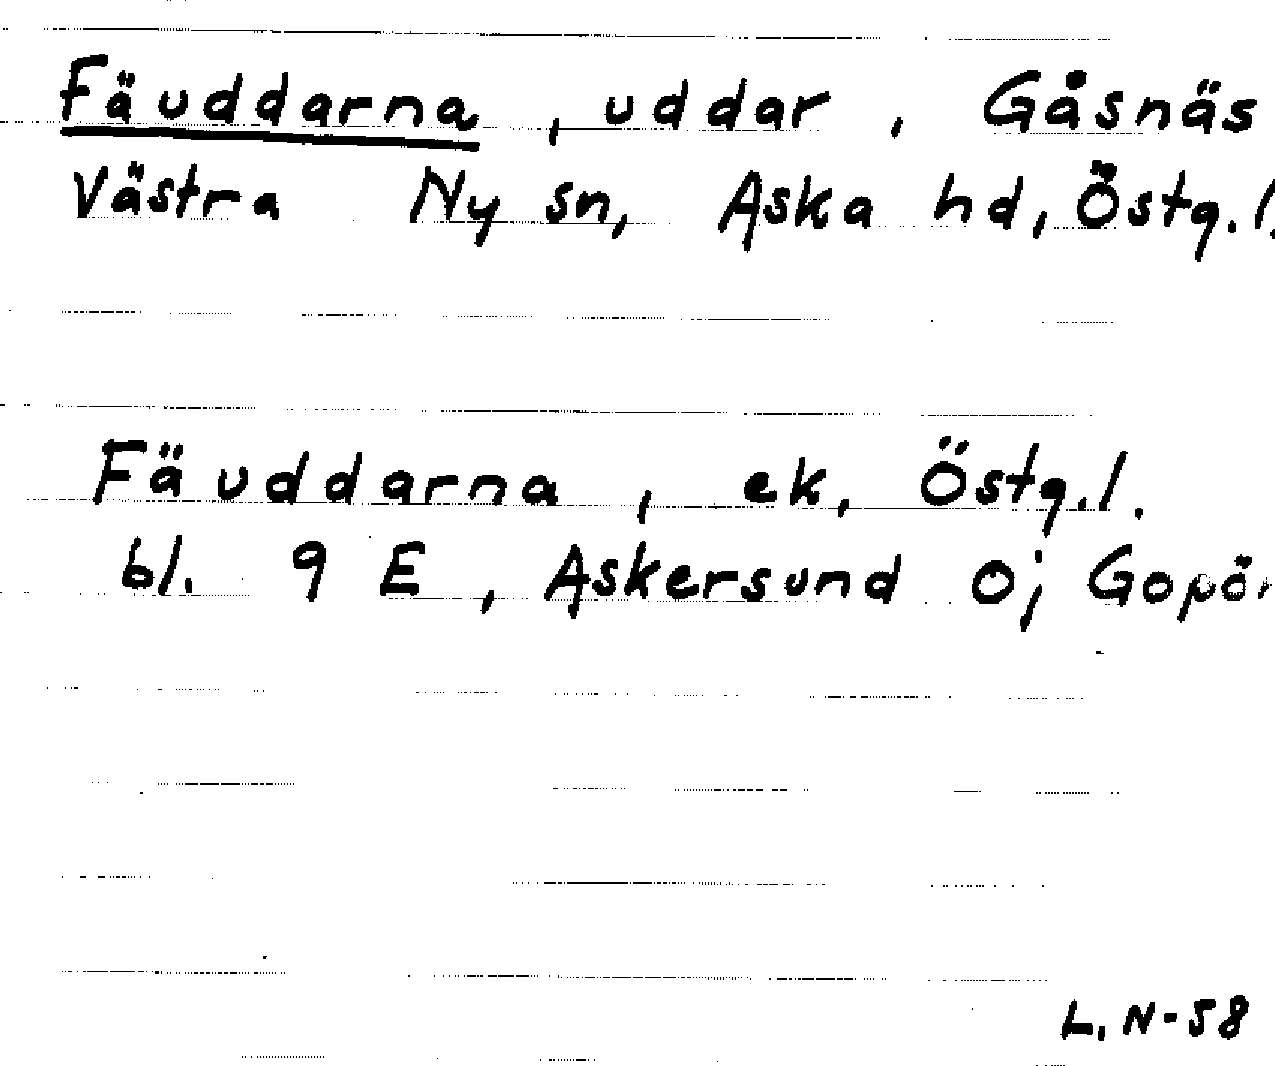 Fäuddarna, uddar, Gåsnäs
Västra Ny sn, Aska hd, Östg.l.
Fäuddarna, ek, Östg.l.
bl. 9 E, Askersund O; Gopör
L. N-58